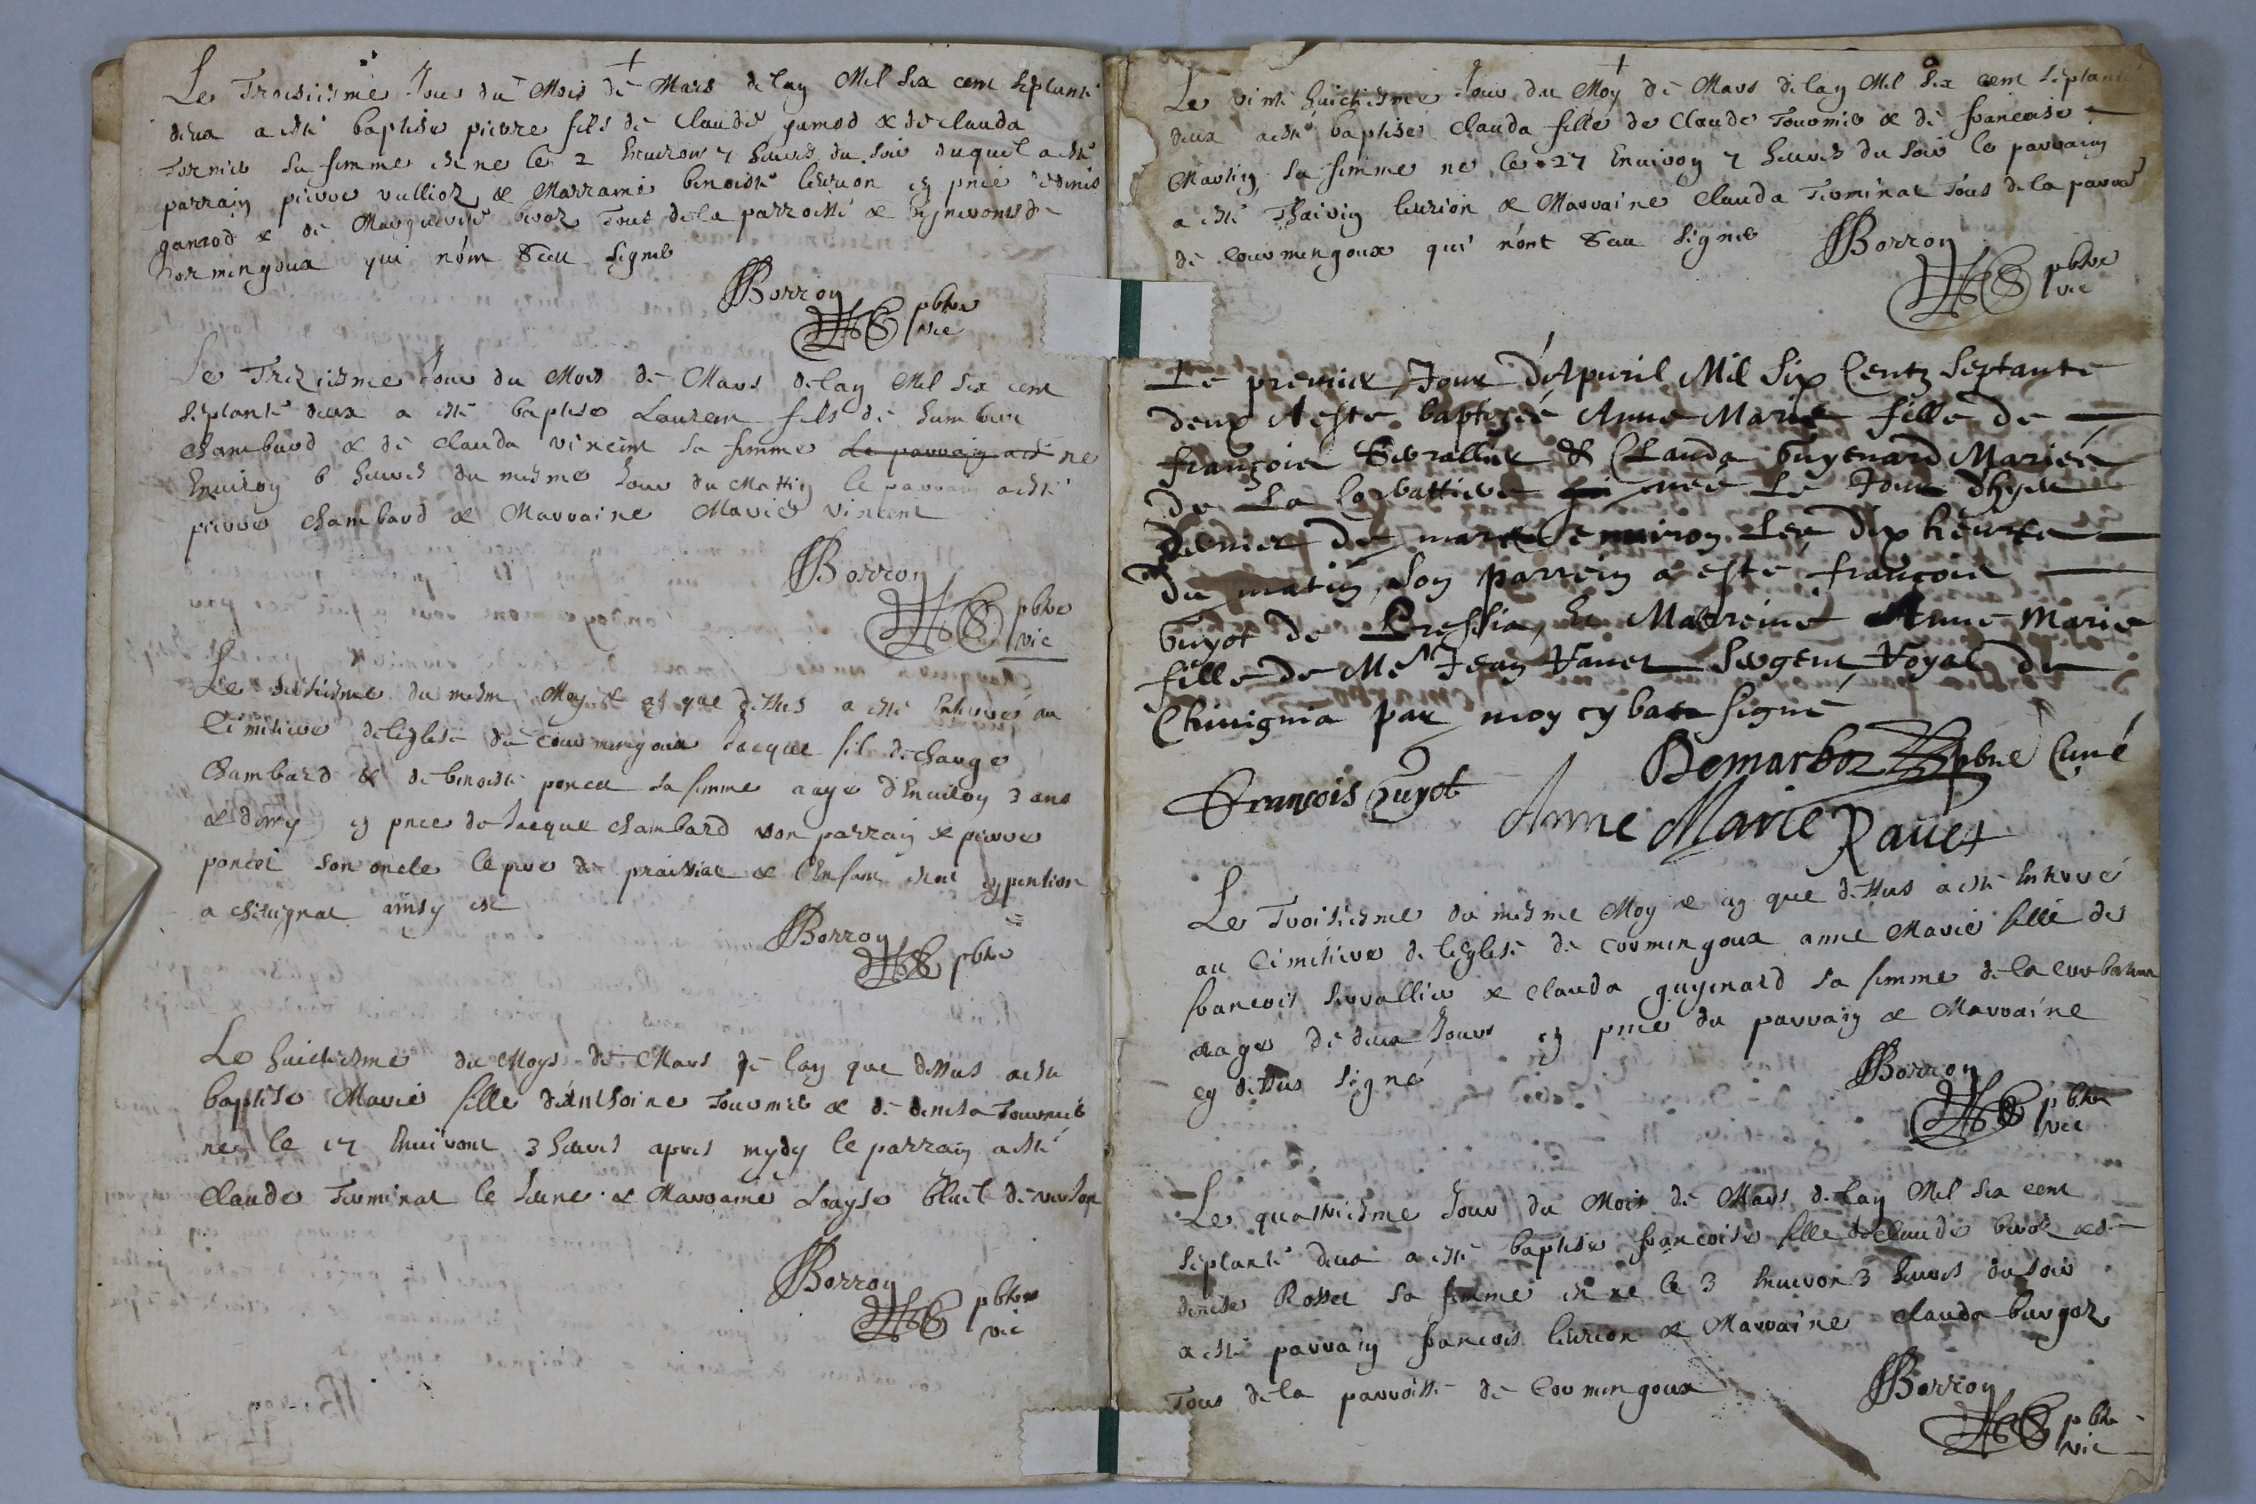 Le Troisiesme Jour du Mois de Mars de lan Mil six cent septante
deux a esté baptise pierre fils de Claude gamod & de Clauda
Tornier sa femme ne le 2 Environ 7 heures du soir duquel a esté
parrain pierre vullioz & Marraine benoiste leurion en pnce
gamod & de Marguerite bivoz Tous de la parroisse &
Cormingoux qui nont sceu signé
Borron
pbtre
vic
Le Treziesme Jour du Mois de Mars de lan Mil six cent
septante deux a esté baptise Lauren fils de humber
Chambard & de Clauda vincent sa femme ne
Environ 6 heures du mesme Jour du Mattin le parrain a esté
pierre Chambard & Marraine Marie vincent
Borron
pbtre
vic
Le du mesme Moy & an que dessus a esté Enterré au
Cimitiere de leglise de Courmingoux Jacque fils de
Chambard & de benoiste poncet sa femme aagé d'Environ 3 ans
& demy en pnce de Jacque Chambard son parrain & pierre
poncet son oncle le pere de & l'enfan en pention
a Chevignat ainsy est
Borron
pbtre
Le huictiesme du Moys de Mars de lan que dessus a esté
baptise Marie fille d'Anthoine Tournier & de denisa Tournier
nee le 17 Environ 3 heures apres mydy le parrain a esté
Claude Terminat le Jeune & Marraine Loayse
Borron
pbtre
vic
Le vint huictiesme Jour du Moy de Mars de lan Mil six cent septante
deux a esté baptise Clauda fille de Claude Tournier & de francoise
Martin sa femme ne le 27 Environ 7 heures du soir le parrain
a esté leurion & Marraine Clauda Terminat Tous de la parroisse
de Courmingoux qui nont sceu signer
Borron
pbtre
vic
Le premier Jour d'Apuril Mil Six Centz Septante
deux A este baptizée Anne Marie fille de
françois Servallier & Clauda Guyenard Mariés
de La Corbattiere née Le Jour d'hyer
dernier de mars environ Les dix heures
du matin, Son parrein a esté françois
Guyot de Pressia, Et Marreine Anne Marie
fille de Me Jean Ravet Sergent Royal de
Chivignia par moy cy bas signé
Demarboz pbre Curé
François Guyot
Anne Marie Ravet
Le Troisiesme du mesme Moy & an que dessus a esté Enterré
au Cimitiere de leglise de Courmingoux anne Marie fille de
francois servallier & Clauda guyenard sa femme de la Corbattiere
aagé de deux Jours en pnce du parrain & Marraine
cy dessus signé
Borron
pbtre
vic
Le quatriesme Jour du Mois de Mars de lan Mil six cent
septante deux a esté baptise francoise fille de Claude bivoz & de
denise Rosset sa femme ne le 3 Environ 3 heures du soir
a esté parrain francois leurion & Marraine Clauda burgoz
Tous de la parroisse de Courmingoux
Borron
pbtre
vic